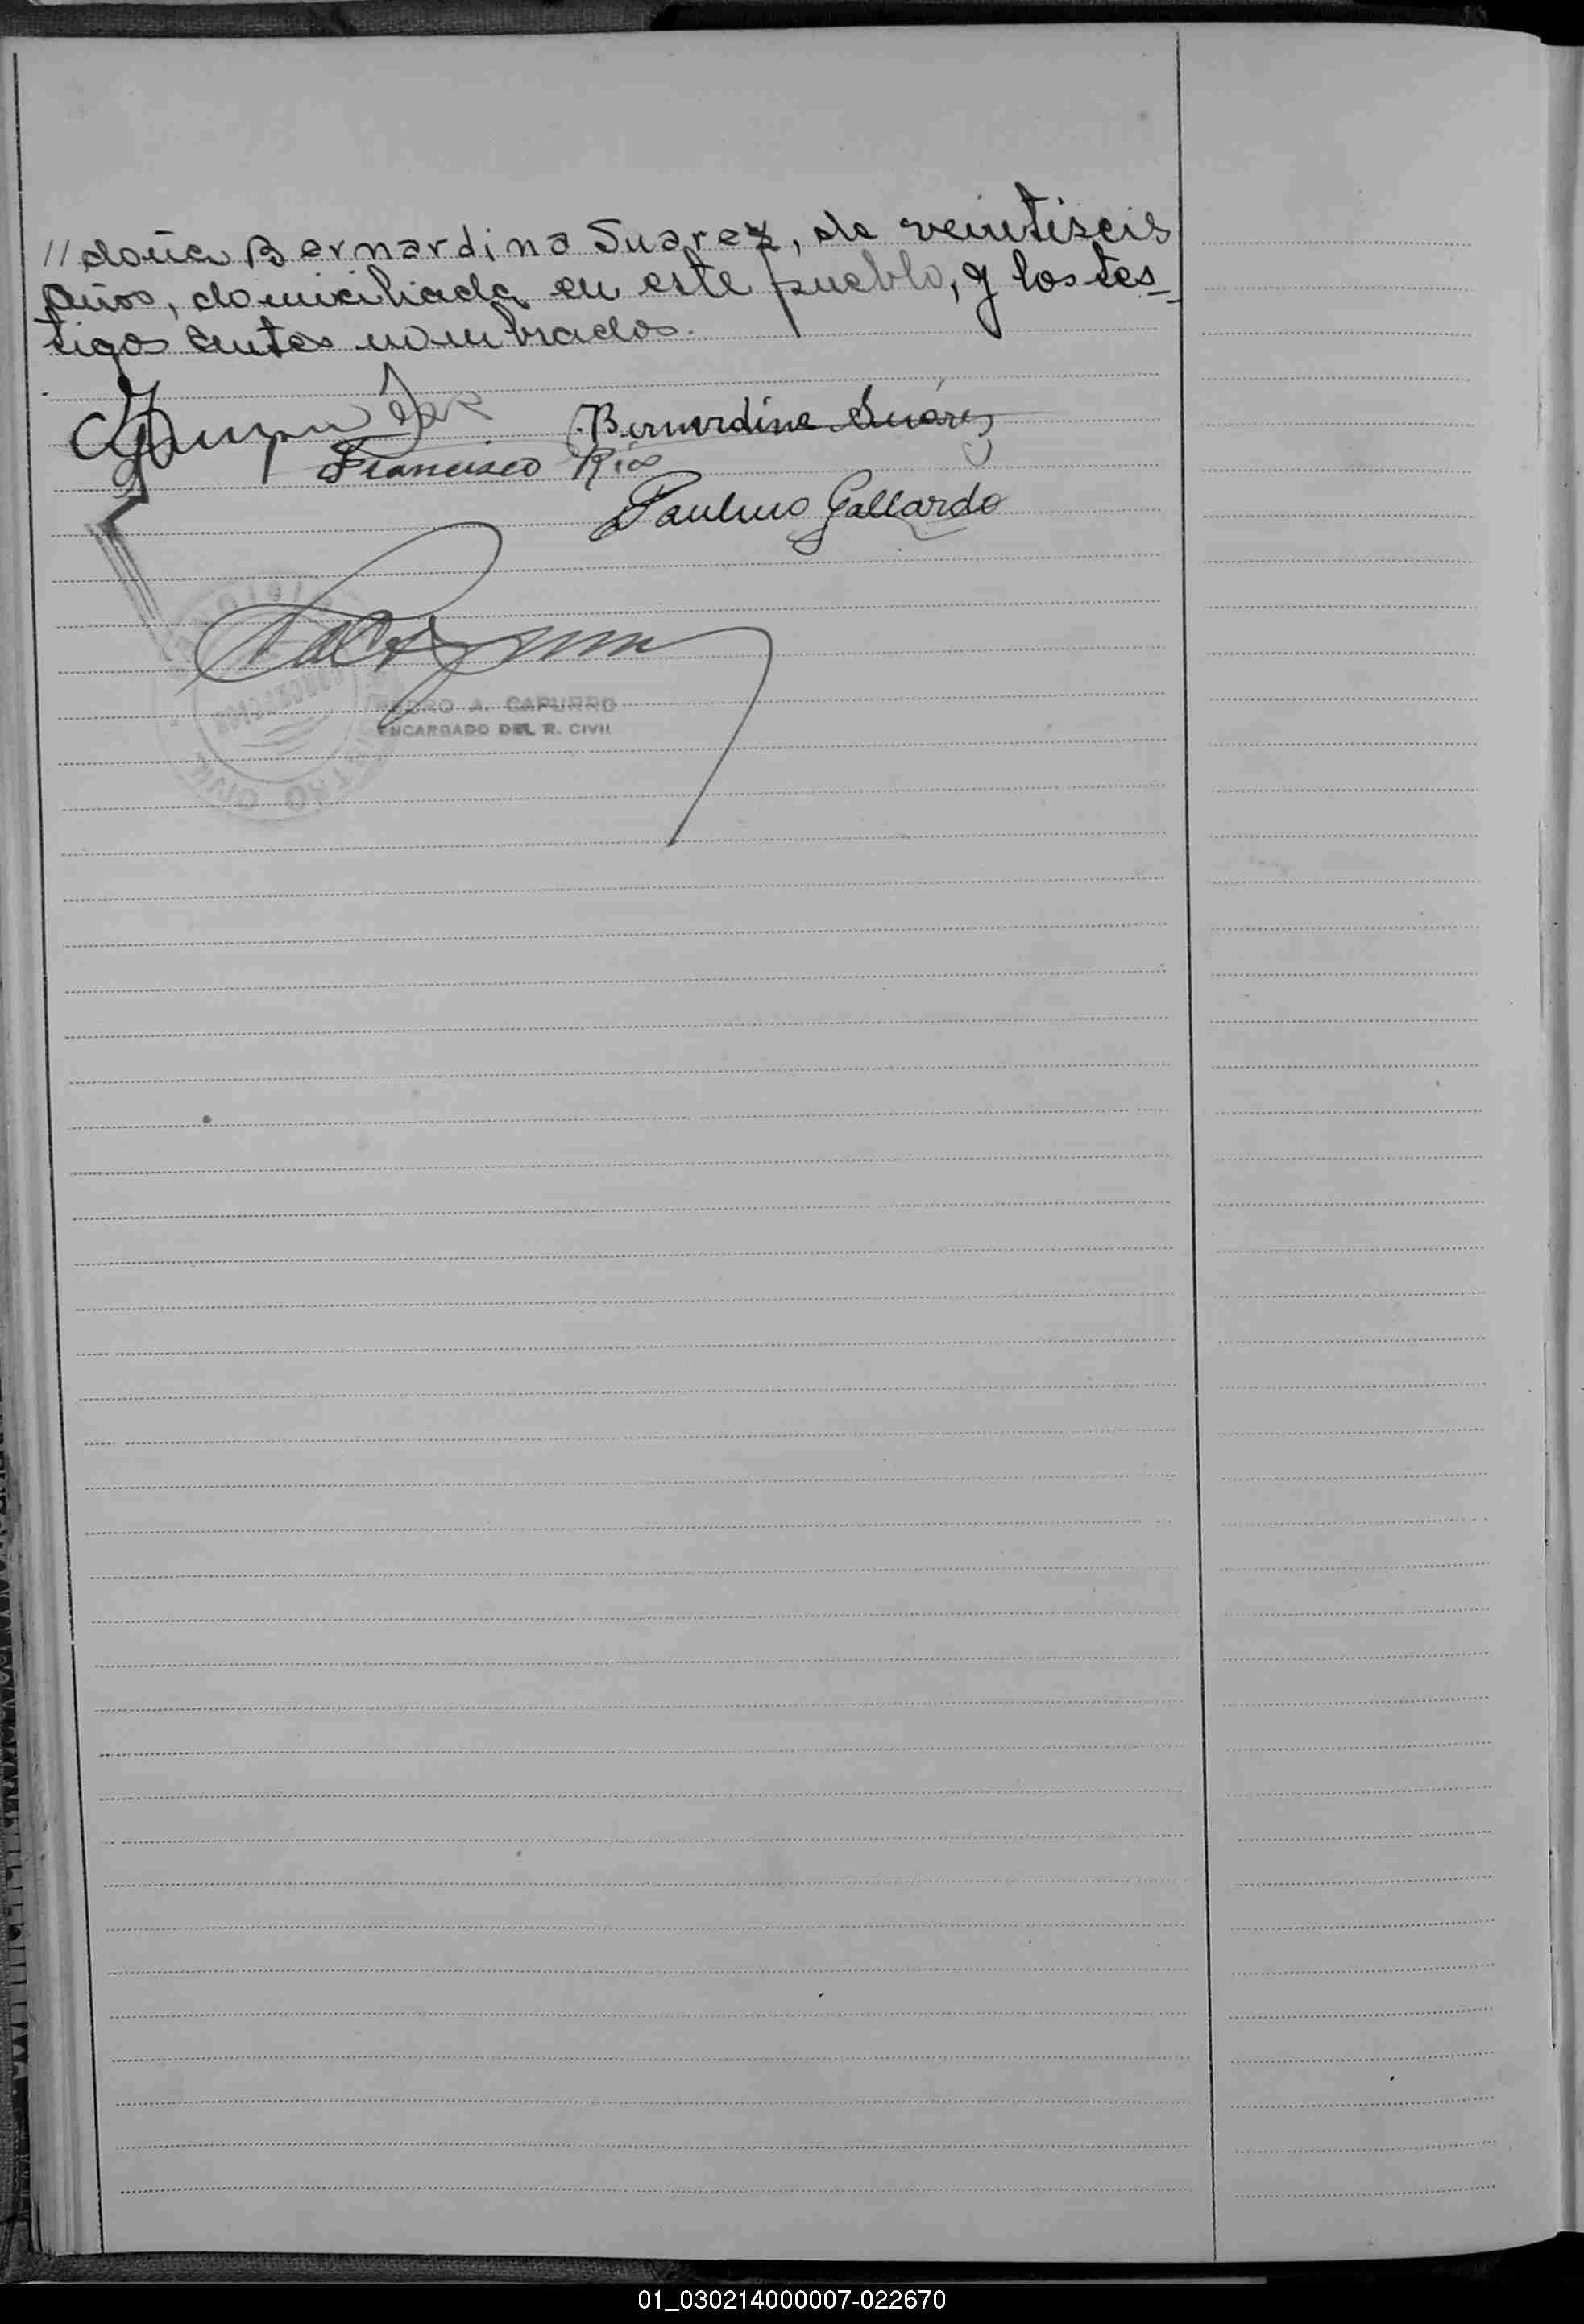 // doña Bernardina Suarez, de veintiseis
años, domiciliada en este pueblo, y los tes-
tigos antes nombrados.
Bernardina Suárez
Francisco Ríos
Paulino Gallardo
PEDRO A. CAPURRO
ENCARGADO DEL R. CIVIL
REGISTRO CIVIL
CONCEPCION
01_030214000007-022670